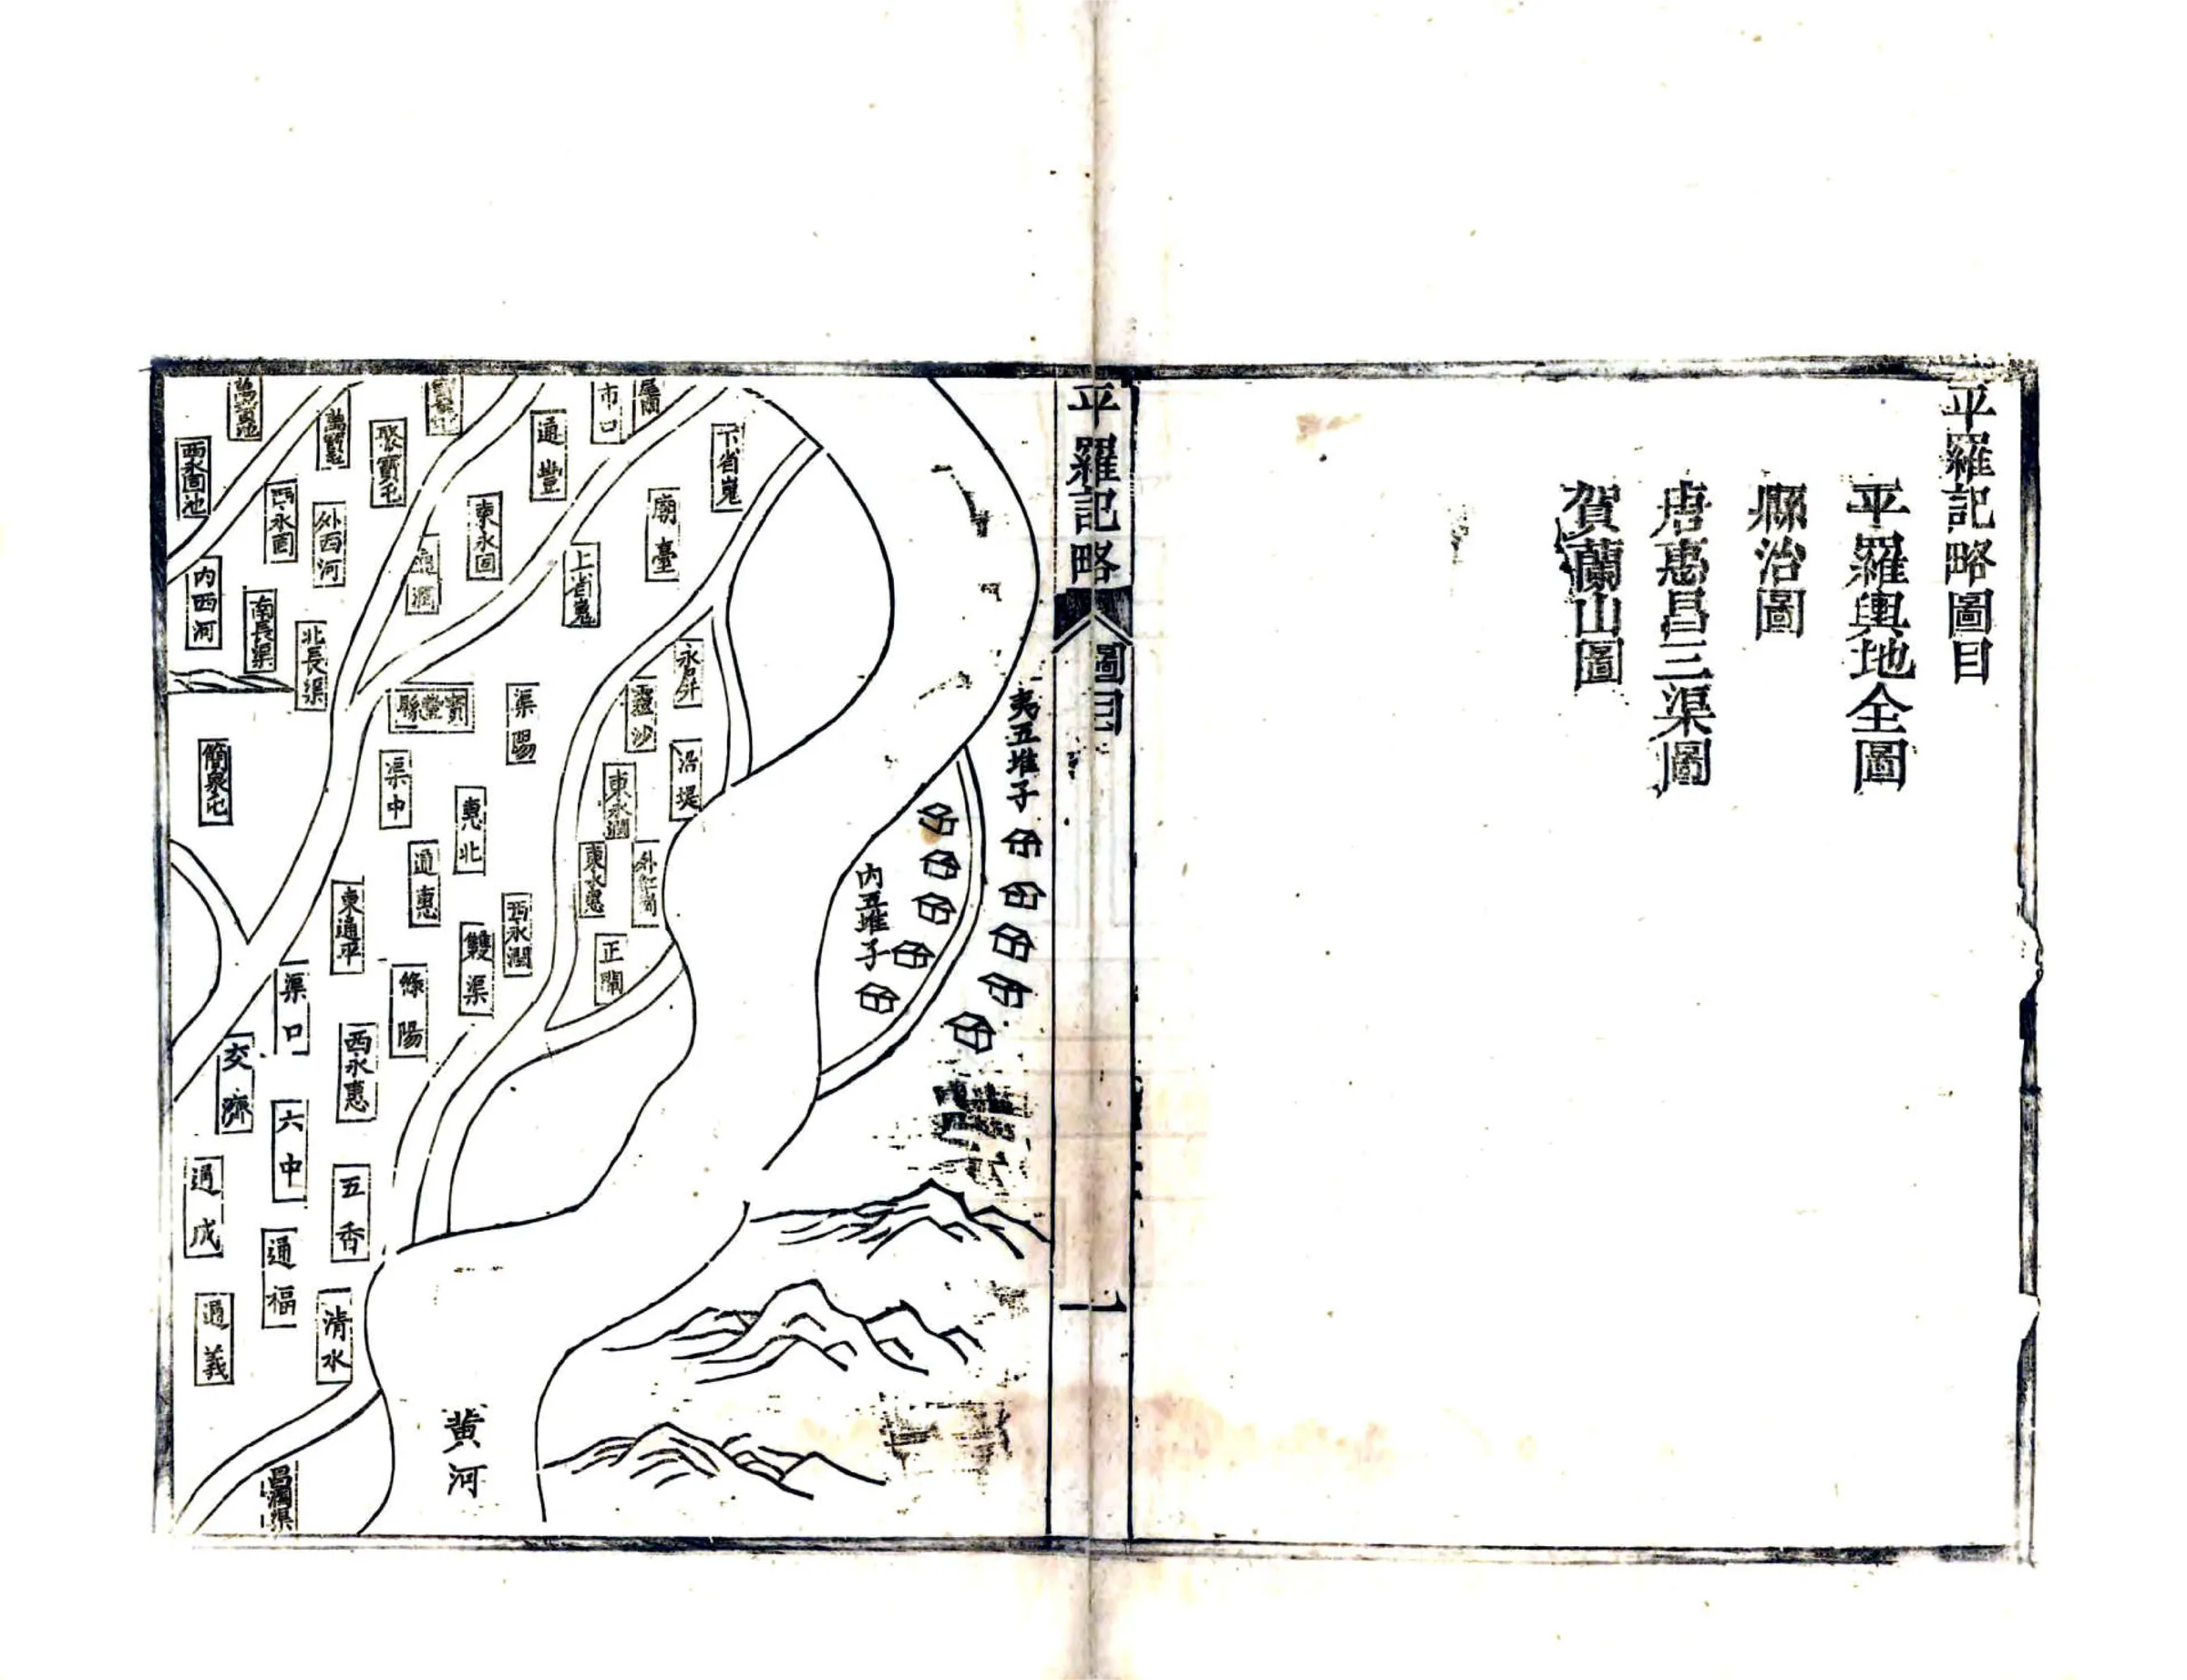 平羅記略圖目
平羅輿地全圖
縣治圖
唐惠昌三渠圖
賀蘭山圖
平羅記略
圖目
一
夷五堆子
內五堆子
下省嵬
廟臺
市口
通豐
上省嵬
東永固
通潤
外西河
西永固池
內西河
南長渠
北長渠
寶豐縣
渠陽
永屏
靈沙
沿堤
東永潤
東永惠
正閘
渠中
惠北
通惠
西永潤
雙渠
東通平
簡泉屯
渠口
西永惠
交濟
六中
五香
通成
通福
通義
清水
昌潤渠
黃河